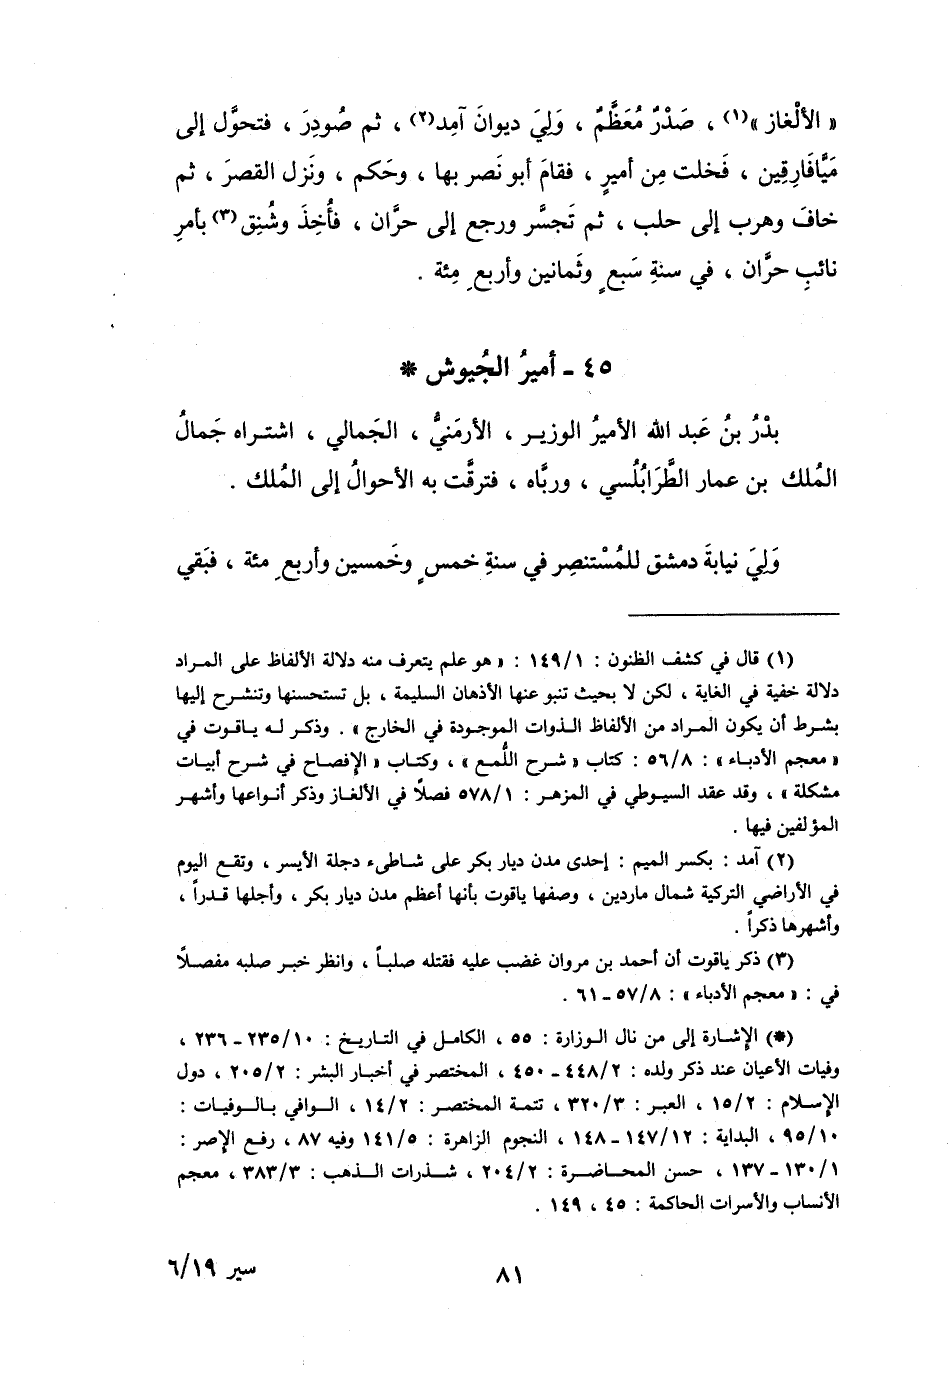 « الألْغاز »(١) ، صَدْرٌ مُعَظَّمٌ ، وَلِيَ ديوانَ آمِد(٢) ، ثم صُودِرَ ، فتحوَّل إلى
مَيَّافَارِقِين ، فَخلت مِن أميرٍ ، فقامَ أبو نَصر بها ، وحَكم ، ونَزل القصرَ ، ثم
خافَ وهرب إلى حلب ، ثم تَجسَّر ورجع إلى حرَّان ، فأُخِذَ وشُنِق(٣) بأمرِ
نائبِ حرَّان ، في سنةِ سَبعٍ وثَمانين وأربعِ مِئة .
٤٥ - أميرُ الجُيوش *
بدْرُ بنُ عَبد الله الأميرُ الوزير ، الأرمَنيُّ ، الجَمالي ، اشتراه جَمالُ
المُلك بن عمار الطَّرَابُلُسي ، وربَّاه ، فترقَّت به الأحوالُ إلى المُلك .
وَلِيَ نيابةَ دمشق للمُسْتنصِر في سنةِ خمسٍ وخَمسين وأربعِ مئة ، فبَقي
(١) قال في كشف الظنون : ١٤٩/١ : « هو علم يتعرف منه دلالة الألفاظ على المراد
دلالة خفية في الغاية ، لكن لا بحيث تنبو عنها الأذهان السليمة ، بل تستحسنها وتنشرح إليها
بشرط أن يكون المراد من الألفاظ الذوات الموجودة في الخارج » . وذكر له ياقوت في
« معجم الأدباء » : ٥٦/٨ : كتاب « شرح اللُّمع » ، وكتاب « الإفصاح في شرح أبيات
مشكلة » ، وقد عقد السيوطي في المزهر : ٥٧٨/١ فصلاً في الألغاز وذكر أنواعها وأشهر
المؤلفين فيها .
(٢) آمد : بكسر الميم : إحدى مدن ديار بكر على شاطىء دجلة الأيسر ، وتقع اليوم
في الأراضي التركية شمال ماردين ، وصفها ياقوت بأنها أعظم مدن ديار بكر ، وأجلها قدراً ،
وأشهرها ذكراً .
(٣) ذكر ياقوت أن أحمد بن مروان غضب عليه فقتله صلباً ، وانظر خبر صلبه مفصلاً
في : « معجم الأدباء » : ٥٧/٨ - ٦١ .
(*) الإشارة إلى من نال الوزارة : ٥٥ ، الكامل في التاريخ : ٢٣٥/١٠ - ٢٣٦ ،
وفيات الأعيان عند ذكر ولده : ٤٤٨/٢ - ٤٥٠ ، المختصر في أخبار البشر : ٢٠٥/٢ ، دول
الإسلام : ١٥/٢ ، العبر : ٣٢٠/٣ ، تتمة المختصر : ١٤/٢ ، الوافي بالوفيات :
٩٥/١٠ ، البداية : ١٤٧/١٢ - ١٤٨ ، النجوم الزاهرة : ١٤١/٥ وفيه ٨٧ ، رفع الإصر :
١٣٠/١ - ١٣٧ ، حسن المحاضرة : ٢٠٤/٢ ، شذرات الذهب : ٣٨٣/٣ ، معجم
الأنساب والأسرات الحاكمة : ٤٥ ، ١٤٩ .
٨١
سير ٦/١٩